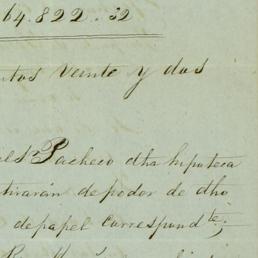 64.822.32
ntos veinte y dos
el Sr Pacheco dha hipoteca
tirarán de poder de dho
de papel correspondte;